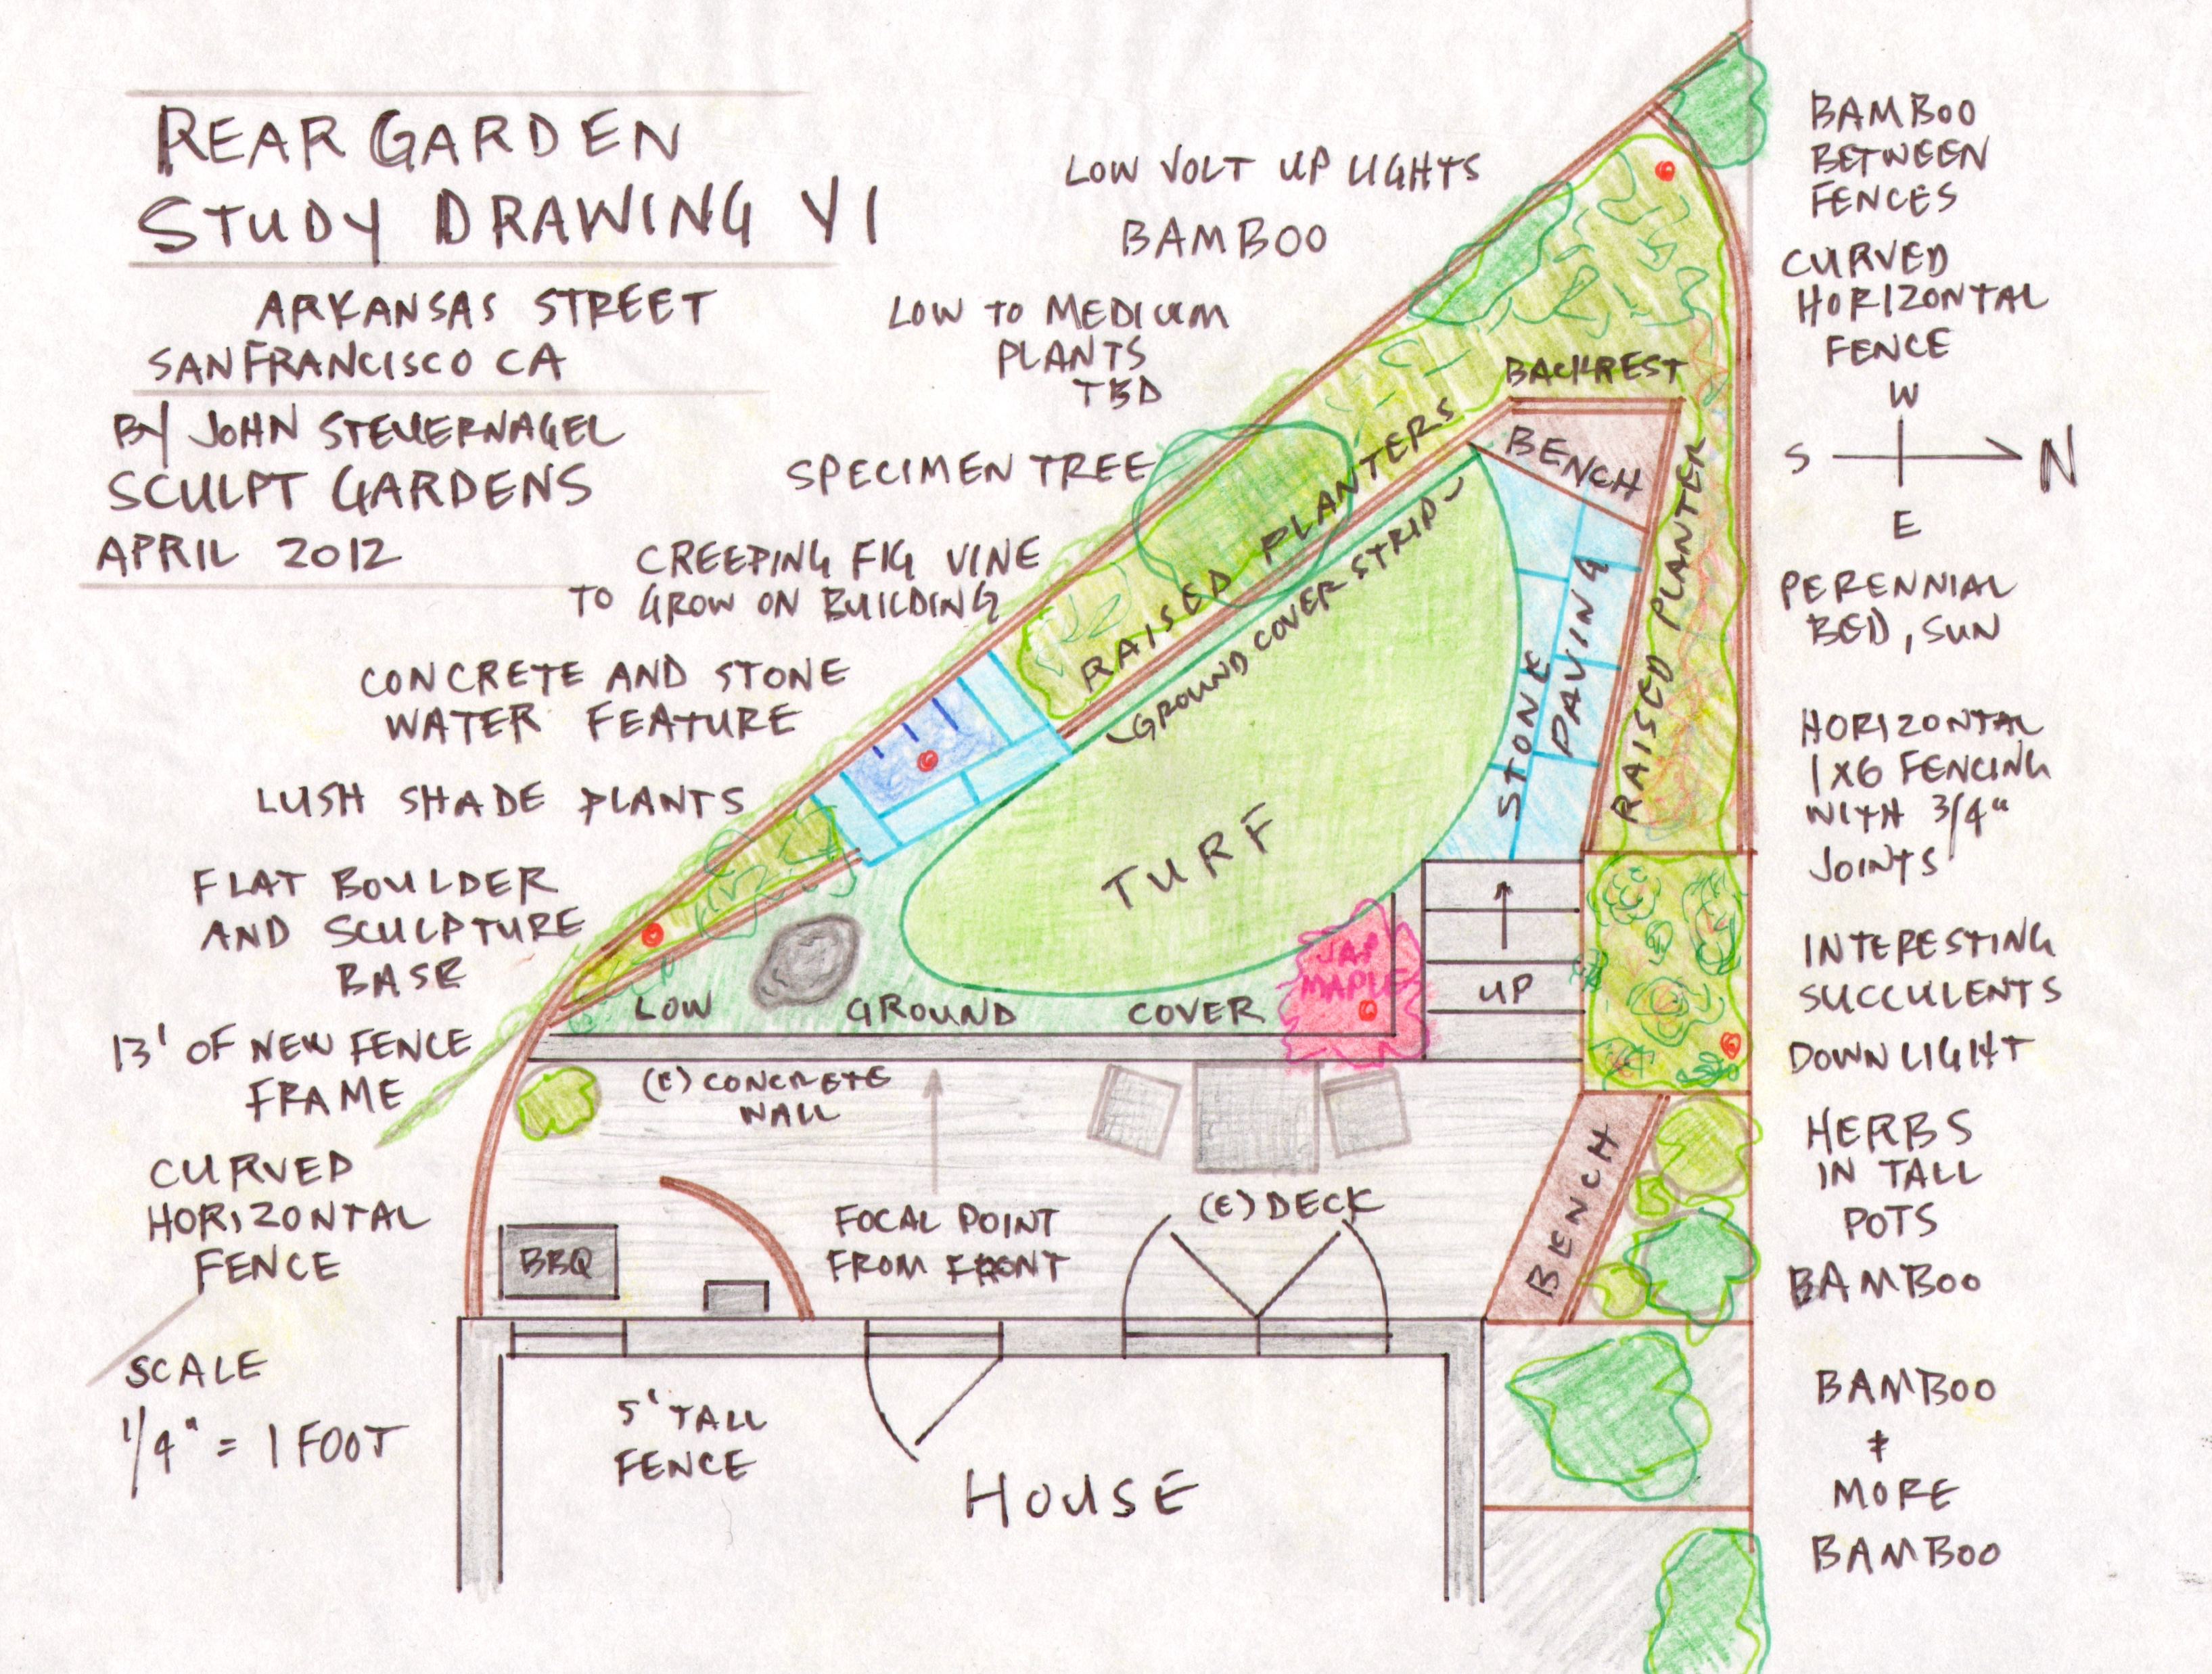 REAR GARDEN
STUDY DRAWING V1
ARKANSAS STREET
SAN FRANCISCO CA
BY JOHN STEUERNAGEL
SCULPT GARDENS
APRIL 2012
LOW VOLT UP LIGHTS
BAMBOO
LOW TO MEDIUM
PLANTS
TBD
SPECIMEN TREE
CREEPING FIG VINE
TO GROW ON BUILDING
CONCRETE AND STONE
WATER FEATURE
LUSH SHADE PLANTS
FLAT BOULDER
AND SCULPTURE
BASE
13' OF NEW FENCE
FRAME
CURVED
HORIZONTAL
FENCE
SCALE
1/4" = 1 FOOT
BACKREST
BENCH
RAISED PLANTERS
GROUND COVER STRIP
STONE
PAVING
RAISED PLANTER
TURF
JAP
MAPLE
UP
LOW GROUND COVER
(E) CONCRETE
WALL
FOCAL POINT
FROM FRONT
(E) DECK
BENCH
BBQ
5' TALL
FENCE
HOUSE
BAMBOO
BETWEEN
FENCES
CURVED
HORIZONTAL
FENCE
W
S N
E
PERENNIAL
BED, SUN
HORIZONTAL
1X6 FENCING
WITH 3/4"
JOINTS
INTERESTING
SUCCULENTS
DOWN LIGHT
HERBS
IN TALL
POTS
BAMBOO
BAMBOO
+
MORE
BAMBOO